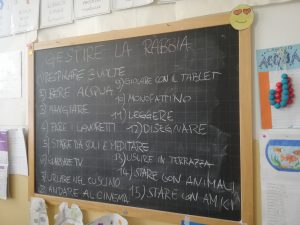 GESTIRE LA RABBIA
1) RESPIRARE 3 VOLTE
2) BERE ACQUA
3) MANGIARE
4) FARE I LAVORETTI
5) STARE DA SOLI E MEDITARE
6) GUARDARE TV
7) URLARE NEL CUSCINO
8) ANDARE AL CINEMA
9) GIOCARE CON IL TABLET
10) MONOPATTINO
11) LEGGERE
12) DISEGNARE
13) USCIRE IN TERRAZZA
14) STARE CON ANIMALI
15) STARE CON AMICI
ACQUA